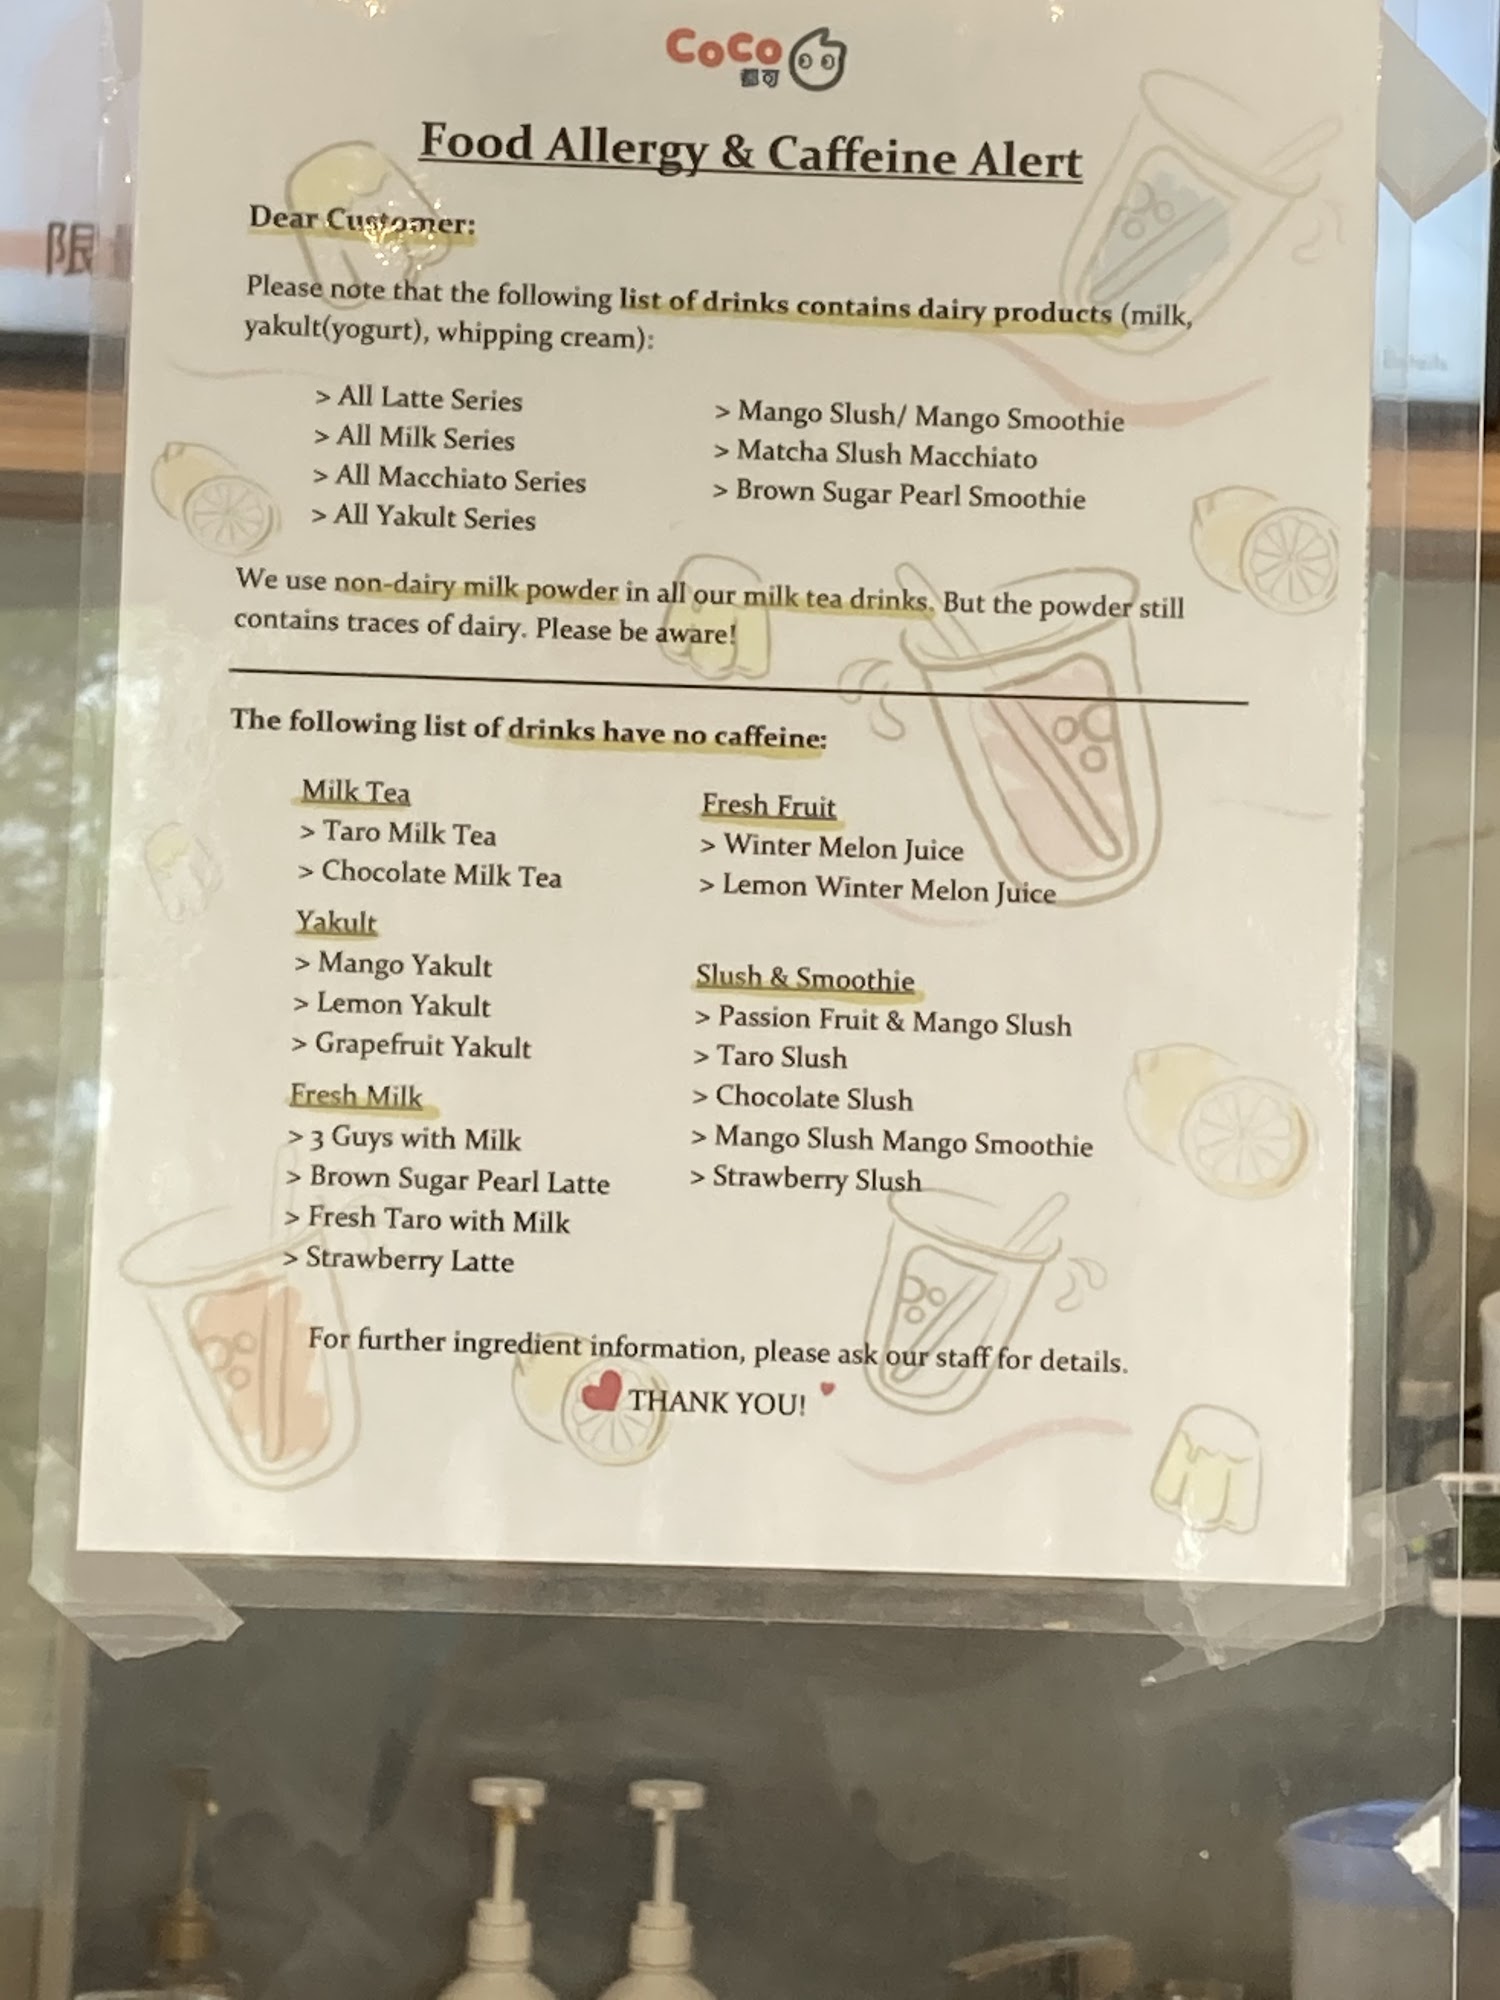 CoCo
都可
Food Allergy & Caffeine Alert
Dear Customer:
Please note that the following list of drinks contains dairy products (milk,
yakult(yogurt), whipping cream):
> All Latte Series
> All Milk Series
> All Macchiato Series
> All Yakult Series
> Mango Slush/ Mango Smoothie
> Matcha Slush Macchiato
> Brown Sugar Pearl Smoothie
We use non-dairy milk powder in all our milk tea drinks. But the powder still
contains traces of dairy. Please be aware!
The following list of drinks have no caffeine:
Milk Tea
> Taro Milk Tea
> Chocolate Milk Tea
Yakult
> Mango Yakult
> Lemon Yakult
> Grapefruit Yakult
Fresh Milk
> 3 Guys with Milk
> Brown Sugar Pearl Latte
> Fresh Taro with Milk
> Strawberry Latte
Fresh Fruit
> Winter Melon Juice
> Lemon Winter Melon Juice
Slush & Smoothie
> Passion Fruit & Mango Slush
> Taro Slush
> Chocolate Slush
> Mango Slush Mango Smoothie
> Strawberry Slush
For further ingredient information, please ask our staff for details.
THANK YOU!
限